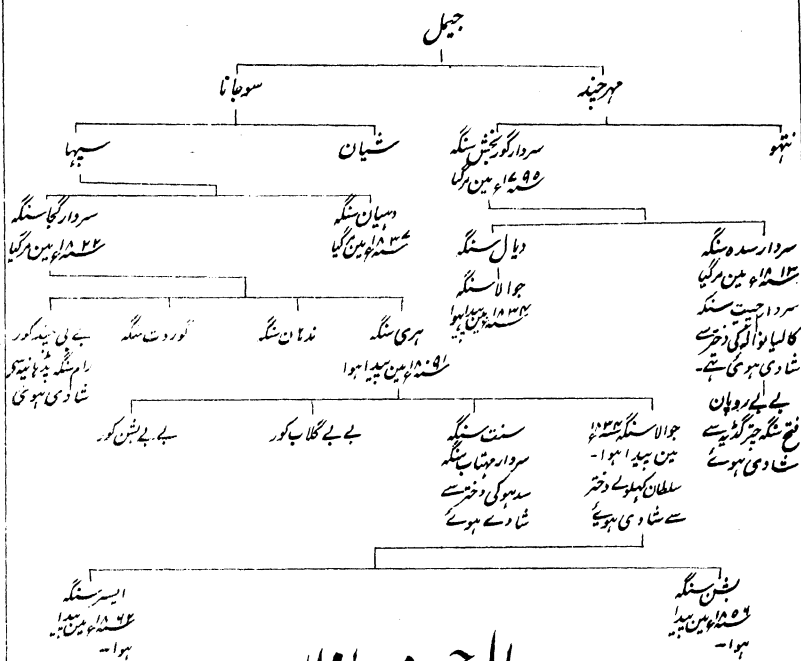 جیمل
مہرچند
سوجانا
نتہو
سردار گوربخش سنگہ
سنہ ۱۷۹۵ء مین مرگیا
شیان
سیہا
سردار سدہ سنگہ
سنہ ۱۸۱۳ء مین مرگیا
سردار جیت سنگہ
کالیانوالہ کی دختر سے
شادی ہوئی ہے۔
بے بے روپان
فتح سنگہ چترگڈیہ سے
شادی ہوئے
دیال سنگہ
جوالا سنگہ
سنہ ۱۸۳۴ء مین پیدا ہوا
دہیان سنگہ
سنہ ۱۸۳۷ء مین مرگیا
سردار گجا سنگہ
سنہ ۱۸۲۲ء مین مرگیا
ہری سنگہ
سنہ ۱۸۰۹ء مین پیدا ہوا
ندہان سنگہ
گوردت سنگہ
بے بی چند کور
رام سنگہ
شادی ہوئی
جوالا سنگہ سنہ ۱۸۳۴ء
مین پیدا ہوا۔
سلطان کہلولے دختر
سے شادی ہوئے
سنت سنگہ
سردار مہتاب سنگہ
سدہو کی دختر سے
شادے ہوئے
بے بے گلاب کور
بے بے بشن کور
بشن سنگہ
سنہ ۱۸۵۶ء مین پیدا
ہوا۔
ایسر سنگہ
سنہ ۱۸۶۲ء مین پیدا
ہوا۔